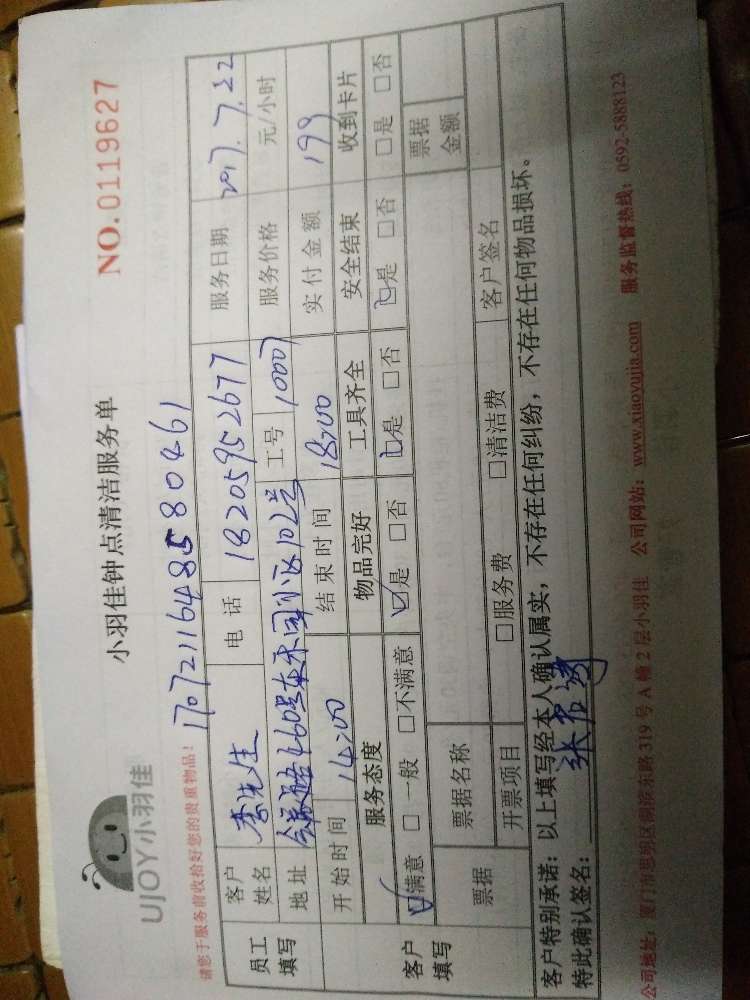 UJOY小羽佳
小羽佳钟点清洁服务单
NO.0119627
请您于服务前收拾好您的贵重物品！
17072116485580461
员工填写
客户姓名 李先生 电话 18205952677 服务日期 2017.7.22
地址 460号 小区102号 工号 10007 服务价格 元/小时
开始时间 14:00 结束时间 18:00 实付金额 199
客户填写
服务态度 物品完好 工具齐全 安全结束 收到卡片
☑满意 □一般 □不满意 ☑是 □否 ☑是 □否 ☑是 □否 □是 □否
票据 票据名称 票据金额
开票项目 □服务费 □清洁费 客户签名
客户特别承诺：以上填写经本人确认属实，不存在任何纠纷，不存在任何物品损坏。
特此确认签名：
公司地址：厦门市思明区湖滨东路319号A幢2层小羽佳 公司网站：www.xiaoyujia.com 服务监督热线：0592-5888123